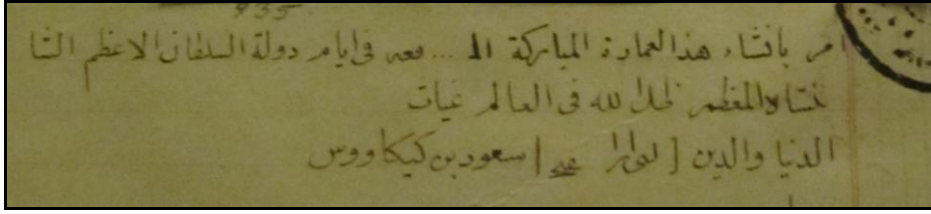 935
امر بانشاء هذا العمارة المباركة الـ ... فعه فى ايام دولة السلطان الاعظم الشا
هنشاه المعظم ظل الله فى العالم غياث
الدنيا والدين [ ] سعود بن كيكاووس